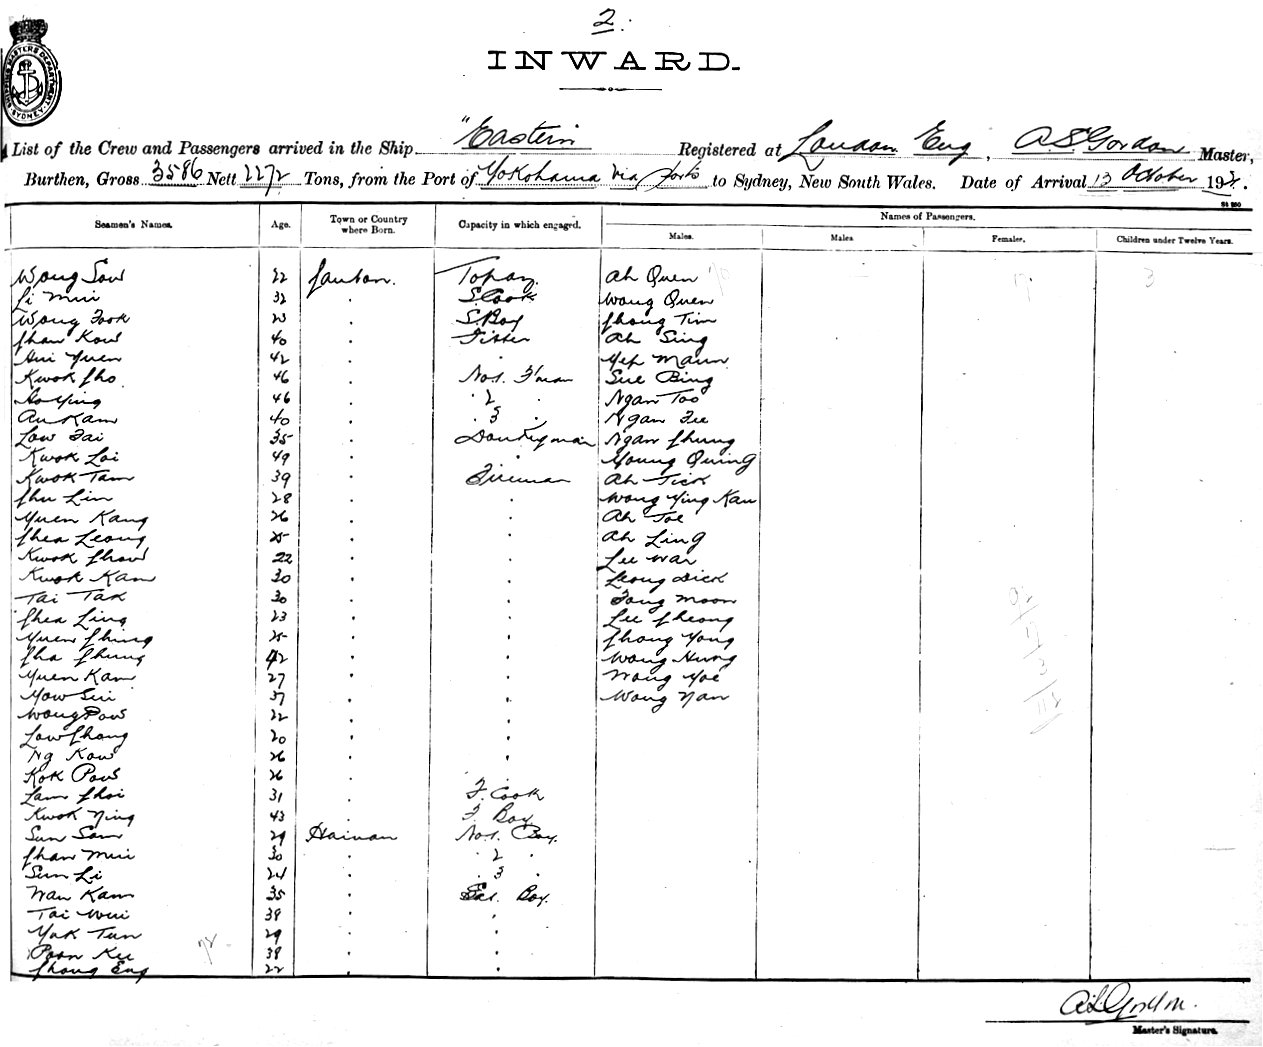 2.
INWARD.
SHIPPING MASTERS DEPARTMENT SYDNEY
List of the Crew and Passengers arrived in the Ship "Eastern Registered at London Eng, A S Gordon Master,
Burthen, Gross 3586 Nett 2272 Tons, from the Port of Yokohama via ports to Sydney, New South Wales. Date of Arrival 13 October 192
Seamen's Names. Age. Town or Country where Born. Capacity in which engaged. Names of Passengers.
Males. Males. Females. Children under Twelve Years.
Wong Sow 22 Canton. Topaz Ah Quen
Li Mui 32 " S. Cook Wong Quen
Wong Fook 23 " S. Boy Chong Tim
Chan Kow 40 " Fitter Ah Sing
Aui Yuen 42 " " Yep Maun
Kwok Cho 46 " No1. F'man Sue Bing
Ho Ying 46 " " 2 " Ngan Too
Au Kam 40 " " 3 " Ngan Fee
Low Fai 35 " Donkeyman Ngan Chung
Kwok Loi 49 " " Young Quing
Kwok Tam 39 " Fireman Ah Tick
Chu Lin 28 " " Wong Ying Kau
Yuen Kang 26 " " Ah Toe
Chea Leong 25 " " Ah Ling
Kwok Chow 22 " " Lee Wah
Kwok Kam 30 " " Leong Dick
Tai Tak 30 " " Fong Moon
Chea Ling 23 " " Lee Cheong
Yuen Ching 25 " " Chong Yong
Cha Chung 42 " " Wong Hung
Yuen Kam 27 " " Wong Yoe
Yow Sui 37 " " Wong Nan
Wong Pow 22 " "
Low Chong 20 " "
Ng Kow 26 " "
Kok Pow 26 " "
Lam Choi 31 " F. Cook
Kwok Ning 43 " F. Boy
Sun Som 29 Hainan No1. Boy.
Chan Mui 30 " " 2 "
Sun Li 24 " " 3 "
Wan Kam 35 " Sal. Boy.
Tai Wui 38 " "
Yok Tun 29 " "
Poon Kee 38 " "
Chong Eng 22 " "
A S Gordon.
Master's Signature.